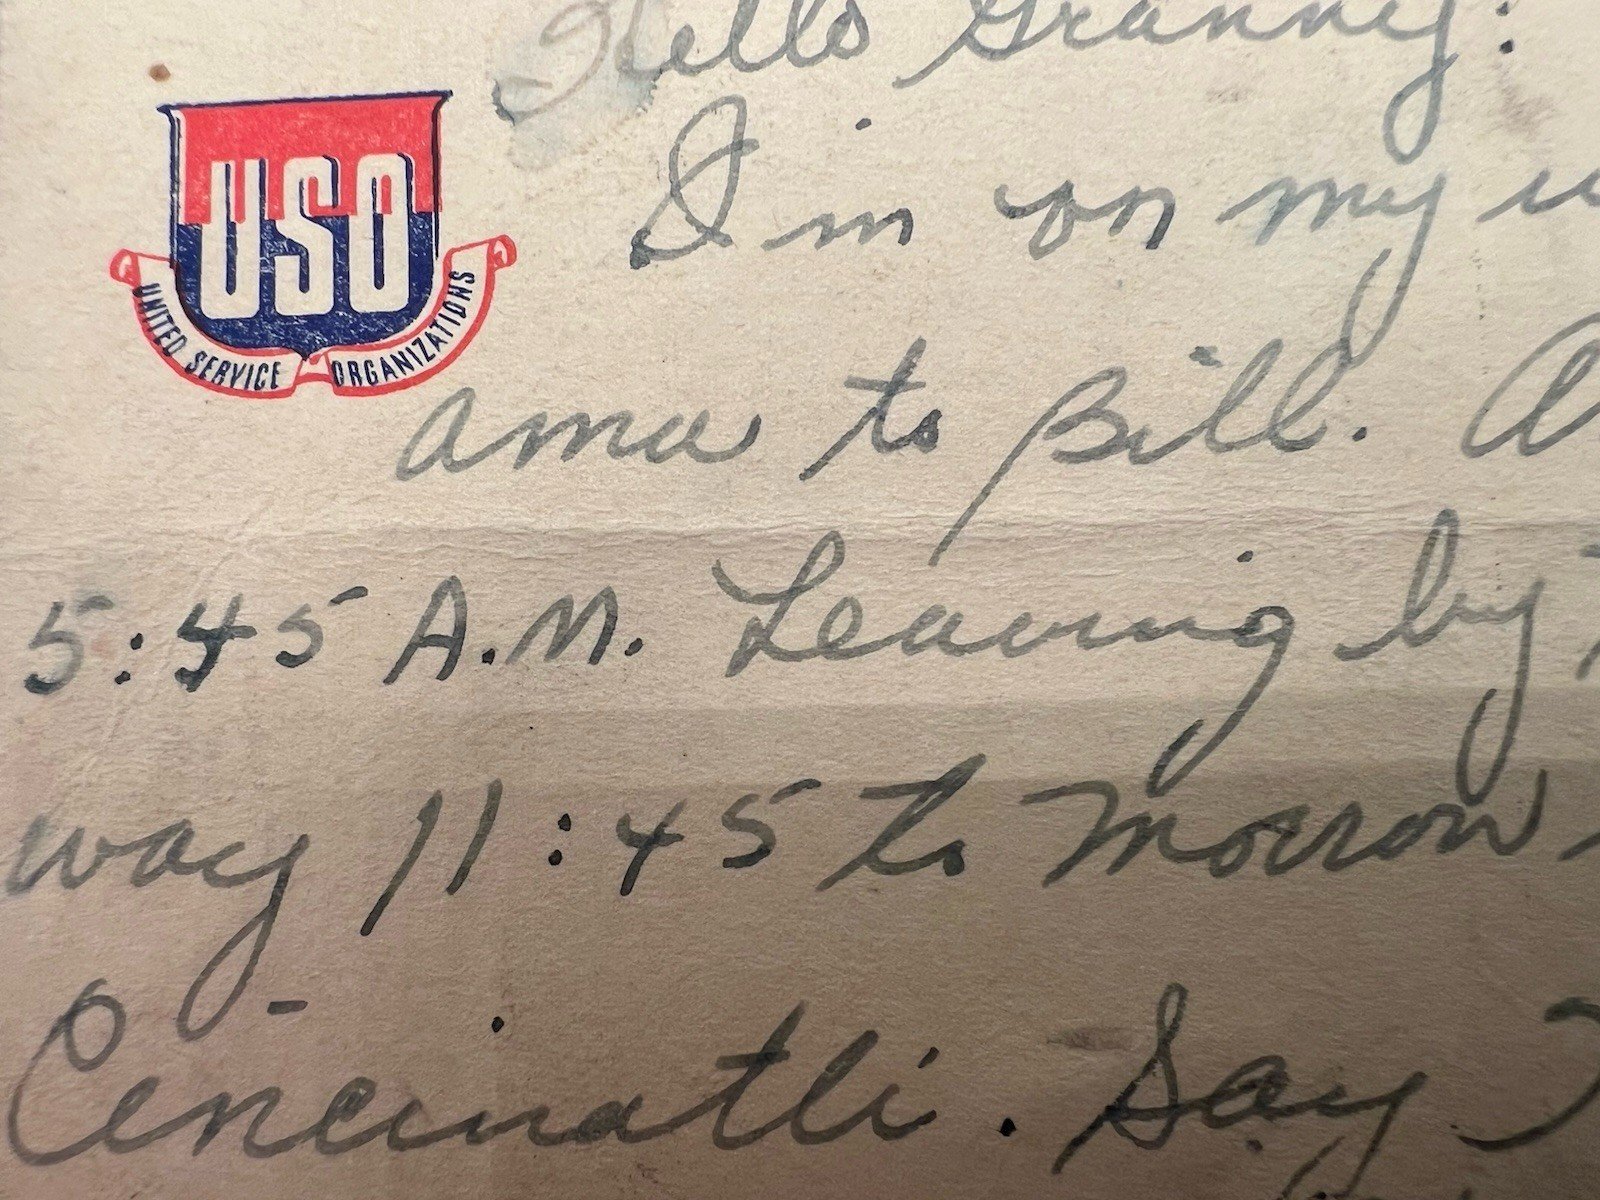 Hello Granny:
USO
UNITED SERVICE ORGANIZATIONS
I'm on my
ama to Bill.
5:45 A.M. Leaving by
way 11:45 to morrow
Cincinatti. Say